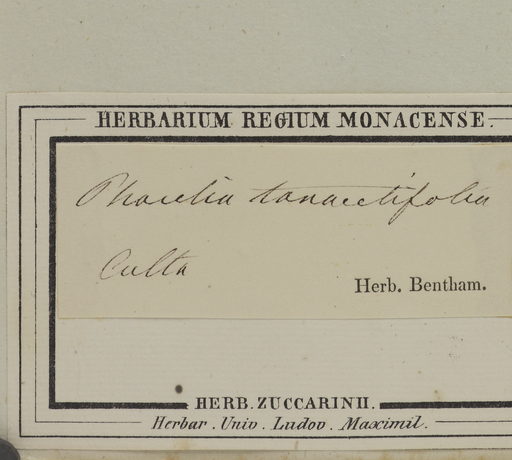 HERBARIUM REGIUM MONACENSE.
Phacelia tanacetifolia
Culta
Herb. Bentham.
HERB. ZUCCARINII.
Herbar. Univ. Ludov. Maximil.